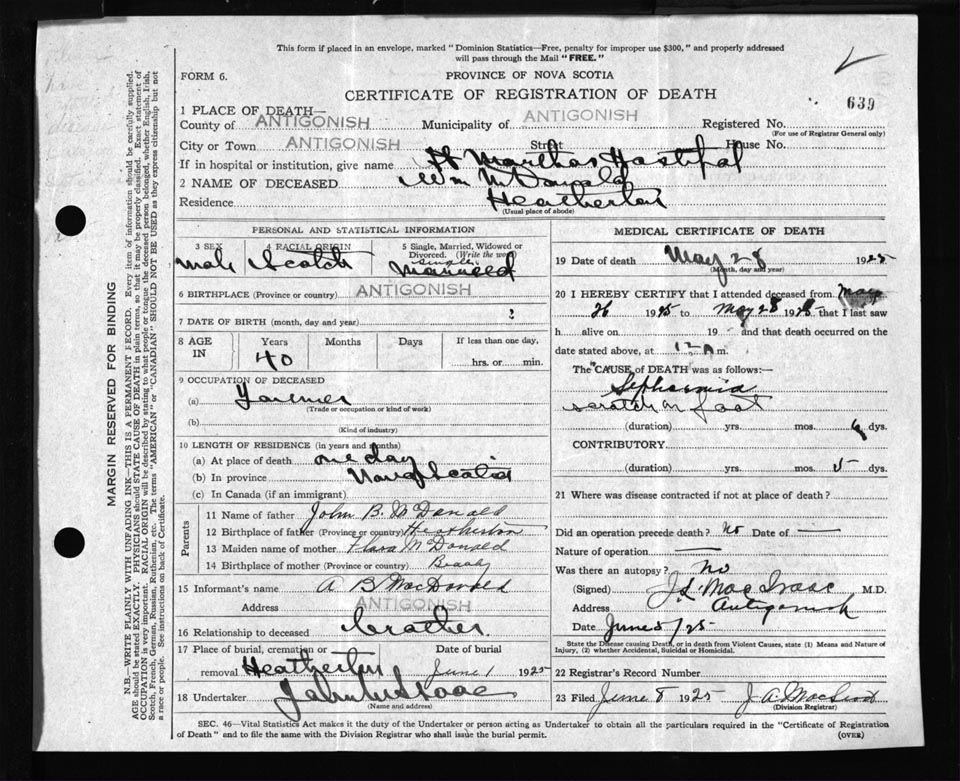 This form if placed in an envelope, marked "Dominion Statistics—Free, penalty for improper use $300," and properly addressed
will pass through the Mail "FREE."
FORM 6.
PROVINCE OF NOVA SCOTIA
CERTIFICATE OF REGISTRATION OF DEATH
639
1 PLACE OF DEATH—
County of ANTIGONISH Municipality of ANTIGONISH Registered No.
(For use of Registrar General only)
City or Town ANTIGONISH Street House No.
If in hospital or institution, give name St Marthas Hospital
2 NAME OF DECEASED Wm McDonald
Residence Heatherton
(Usual place of abode)
PERSONAL AND STATISTICAL INFORMATION
3 SEX 4 RACIAL ORIGIN 5 Single, Married, Widowed or Divorced. (Write the word)
male Scotch single married
6 BIRTHPLACE (Province or country) ANTIGONISH
7 DATE OF BIRTH (month, day and year) ?
8 AGE IN Years Months Days If less than one day,
40 hrs. or min.
9 OCCUPATION OF DECEASED
(a) Farmer
(Trade or occupation or kind of work)
(b)
(Kind of industry)
10 LENGTH OF RESIDENCE (in years and months)
(a) At place of death one day
(b) In province Nova Scotia
(c) In Canada (if an immigrant)
Parents
11 Name of father John B. McDonald
12 Birthplace of father (Province or country) Heatherton
13 Maiden name of mother Flora McDonald
14 Birthplace of mother (Province or country)
15 Informant's name A B MacDonald
Address ANTIGONISH
16 Relationship to deceased brother.
17 Place of burial, cremation or removal Heatherton Date of burial June 1 1925
18 Undertaker John McIsaac
(Name and address)
MEDICAL CERTIFICATE OF DEATH
19 Date of death May 28 1925
(Month, day and year)
20 I HEREBY CERTIFY that I attended deceased from May
26 1925 to May 28 1925 that I last saw
h alive on 19 - and that death occurred on
date stated above, at 12 m.
The CAUSE of DEATH was as follows:—
scratch on foot
(duration) yrs. mos. 6 dys.
CONTRIBUTORY
(duration) yrs. mos. 5 dys.
21 Where was disease contracted if not at place of death?
Did an operation precede death? No Date of —
Nature of operation —
Was there an autopsy? No
(Signed) J. MacIsaac M.D.
Address Antigonish
Date June 5/25
State the Disease causing Death, or in death from Violent Causes, state (1) Means and Nature of
Injury, (2) whether Accidental, Suicidal or Homicidal.
22 Registrar's Record Number
23 Filed June 8 1925 J. A.
(Division Registrar)
SEC. 46—Vital Statistics Act makes it the duty of the Undertaker or person acting as Undertaker to obtain all the particulars required in the "Certificate of Registration
of Death" and to file the same with the Division Registrar who shall issue the burial permit.
(OVER)
MARGIN RESERVED FOR BINDING
N.B.—WRITE PLAINLY WITH UNFADING INK—THIS IS A PERMANENT RECORD. Every item of information should be carefully supplied.
AGE should be stated EXACTLY. PHYSICIANS should STATE CAUSE OF DEATH in plain terms, so that it may be properly classified. Exact statement of
OCCUPATION is very important. RACIAL ORIGIN will be described by stating to what people or tongue the deceased person belonged, whether English, Irish,
Scotch, French, German, Russian, Ruthenian, etc. The terms "AMERICAN" or "CANADIAN" SHOULD NOT BE USED as they express citizenship but not
a race or people. See instructions on back of Certificate.